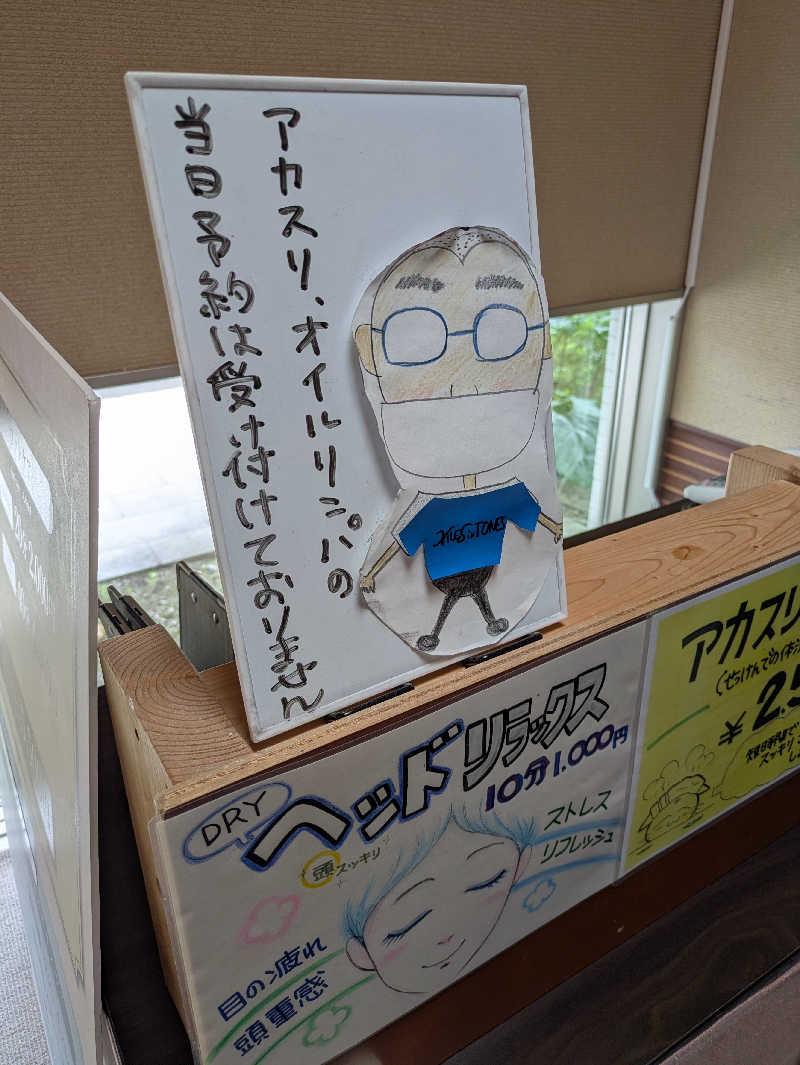 アカスリ、オイルリンパの
当日予約は受け付けておりません
DRY
ヘッドリラックス
10分1,000円
頭スッキリ
ストレス
リフレッシュ
目の疲れ
頭重感
アカスリ
¥2.5